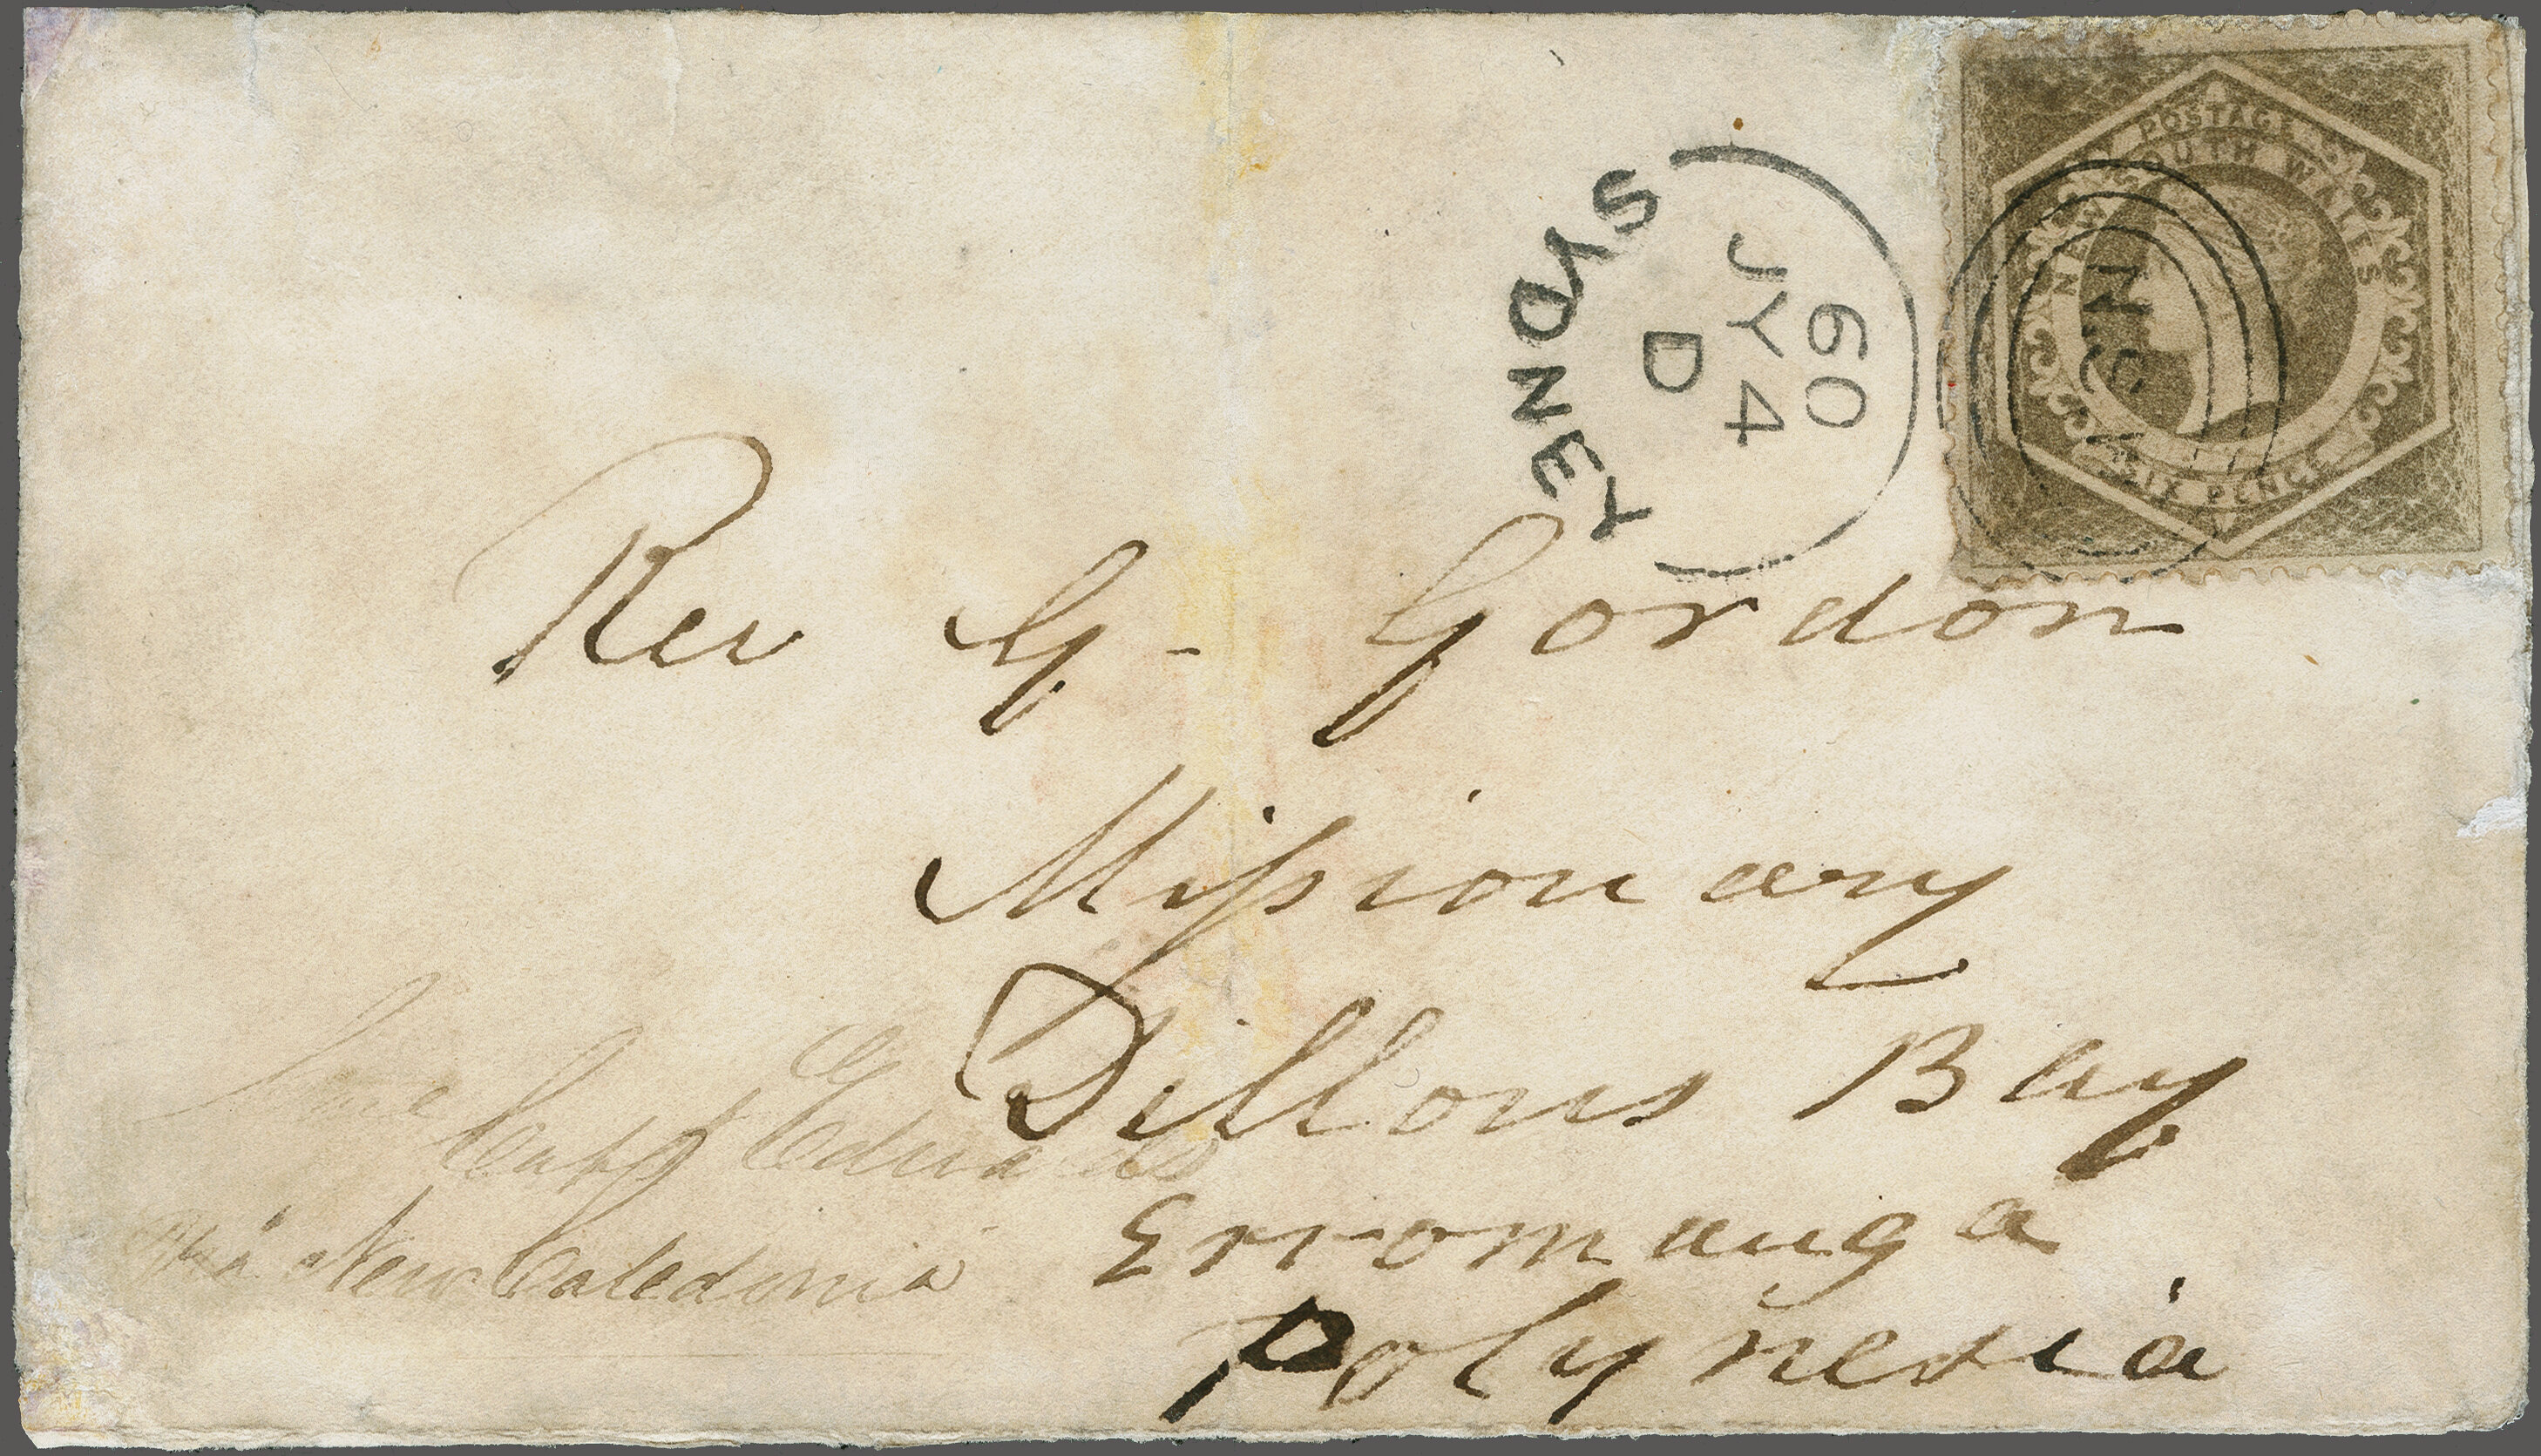 POSTAGE
NEW SOUTH WALES
SIX PENCE
N.S.W
SYDNEY
D
JY 4
60
Rev G. Gordon
Missionary
Dillons Bay
Erromanga
Polynesia
Capt Edwards
Via New Caledonia